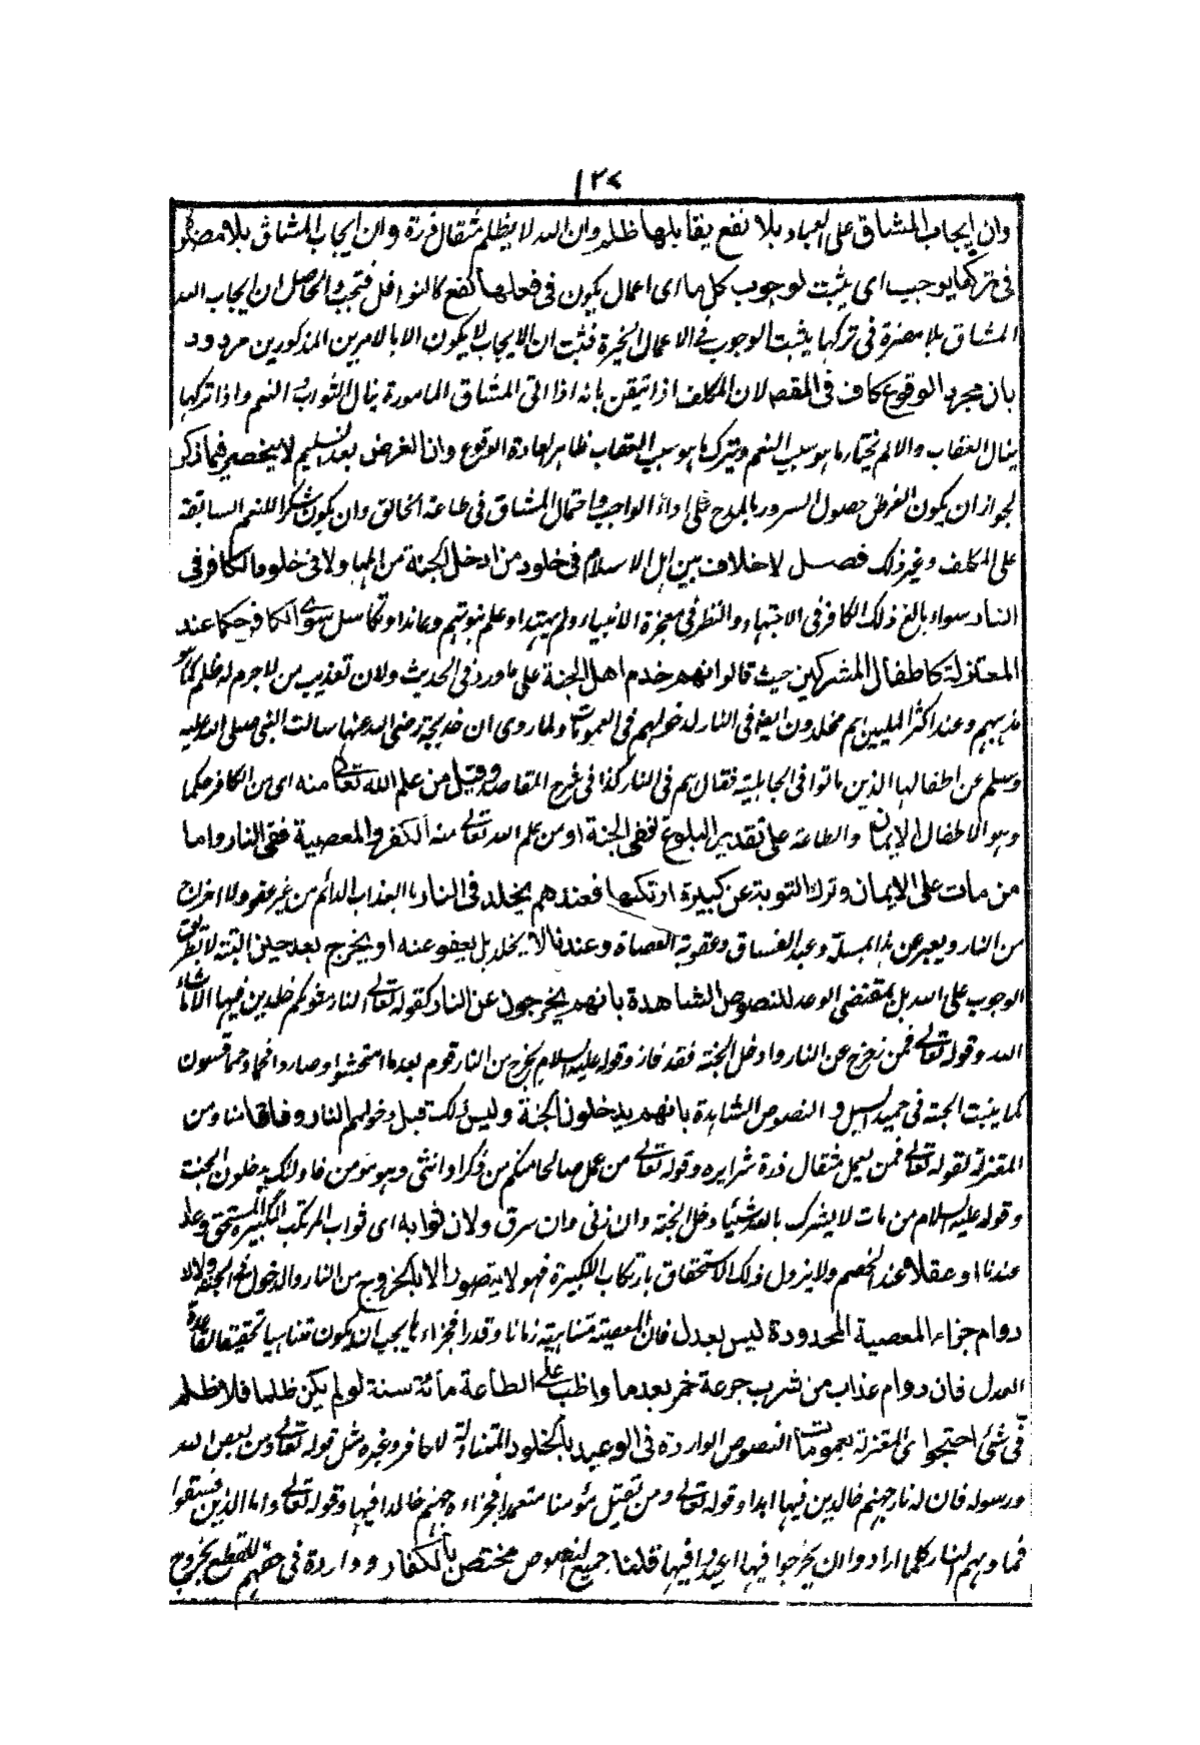 ١٢٧
وان ايجاب المشاق على العباد بلا نفع يقابلها ظلم وان الله لا يظلم مثقال ذرة وان ايجاب المشاق بلا مضرة
فى تركها يوجب اى يثبت لوجوب كل ما اى اعمال يكون فى فعلها نفع كالنوافل فتجب والحاصل ان ايجاب الله
المشاق بلا مضرة فى تركها يثبت الوجوب فى الاعمال الخيرة فثبت ان الايجاب لا يكون الا بالامرين المذكورين مردود
بان مجرد الوقوع كاف فى المقصد لان المكلف اذا تيقن بانه اذا اتى المشاق المامورة ينال الثواب والنعم واذا تركها
ينال العقاب والالم يختار ما هو سبب النعم ويترك ما هو سبب العقاب ظاهر لعادة الوقوع وان الغرض بعد تسليم لا ينحصر فيما ذكر
لجواز ان يكون الغرض حصول السرور بالمدح على اداء الواجب واحتمال المشاق فى طاعة الخالق وان يكون شكرا للنعم السابقة
على المكلف وغير ذلك فصل لا خلاف بين اهل الاسلام فى خلود من ادخل الجنة من اهلها ولا فى خلود الكافر فى
النار سواء بالغ ذلك الكافر فى الاجتهاد والنظر فى معجزة الانبياء ولم يهتد او علم نبوتهم وعاند او تكاسل سوى الكافر حكما عند
المعتزلة كاطفال المشركين حيث قالوا انهم خدم اهل الجنة على ما ورد فى الحديث ولان تعذيب من لا جرم له ظلم كما هو
مذهبهم وعند اكثر المليين هم مخلدون ايضا فى النار لدخولهم فى العمومات ولما روى ان خديجة رضى الله عنها سالت النبى صلى الله عليه
وسلم عن اطفالها الذين ماتوا فى الجاهلية فقال هم فى النار كذا فى شرح المقاصد وقيل من علم الله تعالى منه اى من الكافر حكما
وهو الاطفال الايمان والطاعة على تقدير البلوغ ففى الجنة او من علم الله تعالى منه الكفر والمعصية ففى النار واما
من مات على الايمان وترك التوبة عن كبيرة ارتكبها فعندهم يخلد فى النار بالعذاب الدائم من غير عفو ولا اخراج
من النار ويعبر عن هذا بمسئلة وعيد الفساق وعقوبة العصاة وعندنا لا يخلد بل يعفو عنه او يخرج بعد حين البتة لا بطريق
الوجوب على الله بل بمقتضى الوعد للنصوص الشاهدة بانهم يخرجون عن النار كقوله تعالى النار مثوىكم خلدين فيها الا ما شاء
الله وقوله تعالى فمن زحزح عن النار وادخل الجنة فقد فاز وقوله عليه السلام يخرج من النار قوم بعد ما امتحشوا وصاروا فحما وحمما فينبتون
كما ينبت الحبة فى حميد السيل و النصوص الشاهدة بانهم يدخلون الجنة وليس ذلك قبل دخولهم النار وفاقا منا ومن
المعتزلة لقوله تعالى فمن يعمل مثقال ذرة شرا يره وقوله تعالى من عمل صالحا منكم من ذكر او انثى وهو مؤمن فاولئك يدخلون الجنة
وقوله عليه السلام من مات لا يشرك بالله شيئا دخل الجنة وان زنى وان سرق ولان ثوابه اى ثواب المرتكب الكبيرة المستحق وعدا
عندنا او عقلا عند الخصم ولا يزول ذلك الاستحقاق بارتكاب الكبيرة فهو لا يتصور الا بالخروج من النار والدخول فى الجنة ولان
دوام جزاء المعصية المحدودة ليس بعدل فان المعصية متناهية زمانا وقدرا فجزاءها يجب ان يكون متناهيا تحقيقا لقاعدة
العدل فان دوام عذاب من شرب جرعة خمر بعد ما واظب على الطاعة مائة سنة لو لم يكن ظلما فلا ظلم
فى شئ احتجوا اى المعتزلة بعمومات النصوص الواردة فى الوعيد بالخلود المتناولة للكافر وغيره مثل قوله تعالى ومن يعص الله
ورسوله فان له نار جهنم خالدين فيها ابدا وقوله تعالى ومن يقتل مؤمنا متعمدا فجزاءه جهنم خالدا فيها وقوله تعالى واما الذين فسقوا
فماويهم النار كلما ارادوا ان يخرجوا فيها اعيدوا فيها قلنا جميع النصوص مختص بالكفار وواردة فى حقهم للقطع بخروج